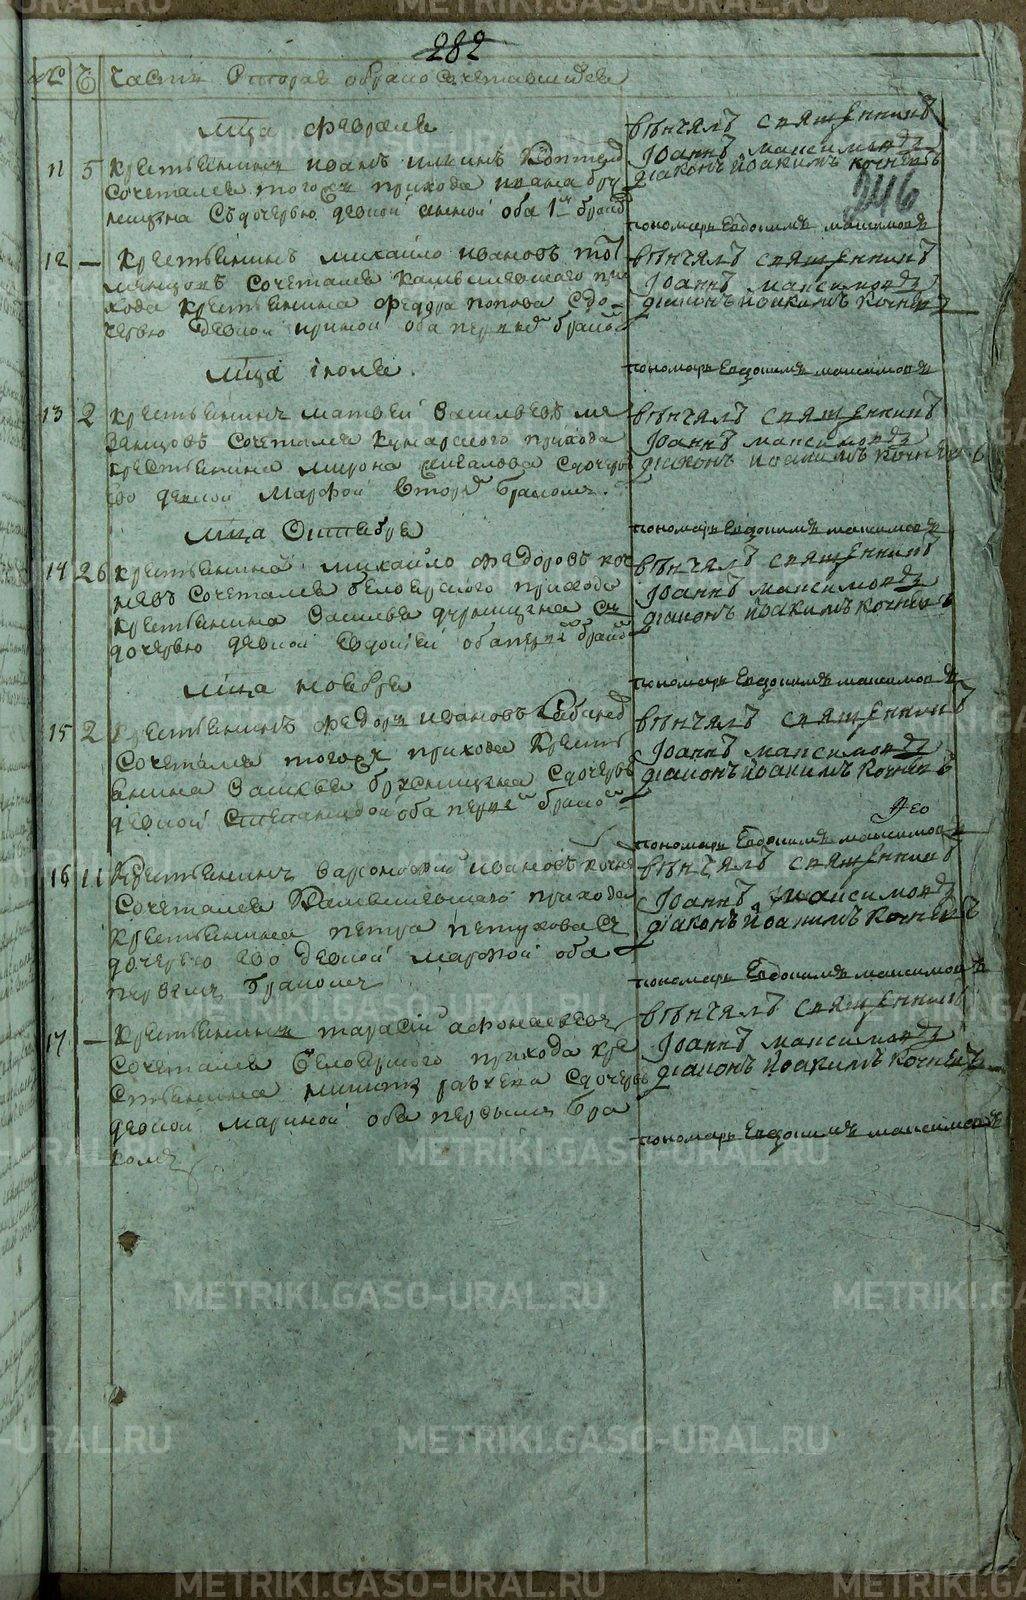 282
№ Ч Часть Вторая о бракосочетавшихся
мца февраля
11 5 крестьянинъ иванъ
сочетался тогожъ прихода ивана
съ дочерью девкой анной оба 1м брако
венчалъ священникъ
Iоаннъ максимовъ
діаконъ Iоакимъ кочневъ
246
пономарь Евдокимъ максимовъ
12 — крестьянинъ михайло ивановъ
сочетался камышевскаго при
хода крестьянина федора попова с до
черью девкой ириной оба первымъ бракомъ
венчалъ священникъ
Iоаннъ максимовъ
діаконъ Iоакимъ кочневъ
мца iюля
пономарь Евдокимъ максимовъ
13 2 крестьянинъ матвей васильевъ
сочетался прихода
крестьянина мирона с дочерь
ею девкой марфой вторымъ бракомъ.
венчалъ священникъ
Iоаннъ максимовъ
діаконъ Iоакимъ кочневъ
мца Октября
пономарь Евдокимъ максимовъ
14 26 крестьянинъ михайло федоровъ коч
невъ сочетался белоярского прихода
крестьянина василья съ
дочерью девкой оба первымъ бракомъ
венчалъ священникъ
Iоаннъ максимовъ
діаконъ Iоакимъ кочневъ
мца ноября
пономарь Евдокимъ максимовъ
15 2 крестьянинъ федоръ ивановъ
сочетался тогожъ прихода кресть
янина василья брусницына с дочерью
девкой степанидой оба первымъ бракомъ
венчалъ священникъ
Iоаннъ максимовъ
діаконъ Iоакимъ кочневъ
пономарь Евдокимъ максимовъ
16 11 крестьянинъ ивановъ кочне
сочетался камышевскаго прихода
крестьянина петра петухова съ
дочерью его девкой марфой оба
первымъ бракомъ
венчалъ священникъ
Iоаннъ максимовъ
діаконъ Iоакимъ кочневъ
пономарь Евдокимъ максимовъ
17 — крестьянинъ тарасий афонасьевъ
сочетался белоярского прихода кре
стьянина с дочерью
девкой мариной оба первымъ бра
комъ
венчалъ священникъ
Iоаннъ максимовъ
діаконъ Iоакимъ кочневъ
пономарь Евдокимъ максимовъ
METRIKI.GASO-URAL.RU